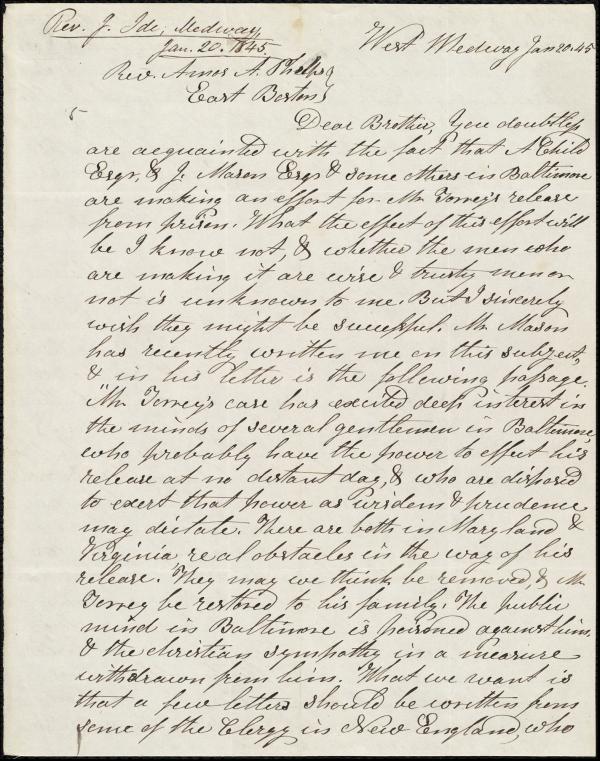 Rev. J. Ide; Medway
Jan. 20. 1845.
West Medway Jan 20. 45
Rev. Amos A. Phelps
East Boston
Dear Brother, You doubtless
are acquainted with the fact that A Child
Esqr, & J. Mason Esqr & some others in Baltimore
are making an effort for Mr Torrey's release
from prison. What the effect of this effort will
be I know not, & whether the men who
are making it are wise & trusty men or
not is unknown to me. But I sincerely
wish they might be successful. Mr. Mason
has recently written me on this subject,
& in his letter is the following passage.
"Mr Torrey's case has excited deep interest in
the minds of several gentlemen in Baltimore,
who probably have the power to effect his
release at no distant day, & who are disposed
to exert that power as wisdom & prudence
may dictate. There are both in Maryland &
Virginia real obstacles in the way of his
release. They may we think be removed, & Mr
Torrey be restored to his family. The public
mind in Baltimore is poisoned against him,
& the christian sympathy in a measure
withdrawn from him. What we want is
that a few letters should be written from
some of the Clergy in New England, who